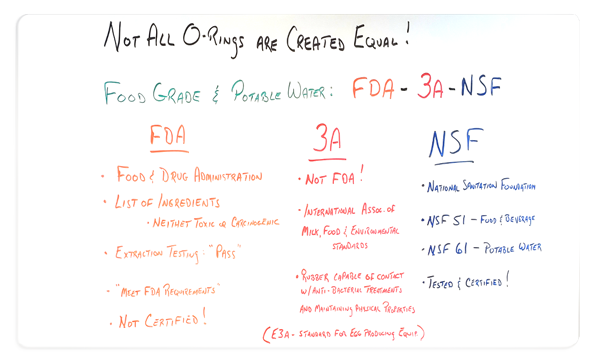 NOT ALL O-RINGS ARE CREATED EQUAL!
FOOD GRADE & POTABLE WATER: FDA - 3A - NSF
FDA
• FOOD & DRUG ADMINISTRATION
• LIST OF INGREDIENTS
• NEITHET TOXIC OR CARCINOGENIC
• EXTRACTION TESTING - "PASS"
• "MEET FDA REQUIREMENTS"
• NOT CERTIFIED!
3A
• NOT FDA!
• INTERNATIONAL ASSOC. OF
MILK, FOOD & ENVIRONMENTAL
STANDARDS
• RUBBER CAPABLE OF CONTACT
W/ ANTI-BACTERIAL TREATMENTS
AND MAINTAINING PHYSICAL PROPERTIES
(E3A - STANDARD FOR EGG PRODUCING EQUIP.)
NSF
• NATIONAL SANITATION FOUNDATION
• NSF 51 - FOOD & BEVERAGE
• NSF 61 - POTABLE WATER
• TESTED & CERTIFIED!